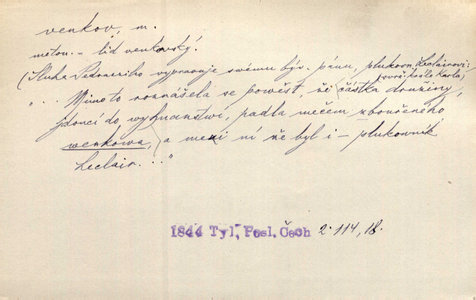 venkov, m.
meton. - lid venkovský.
(Sluha Ledouceriho vypravuje svému býv. pánu, plukovn. Leclairovi:
"... Mimo to roznášela se pověst, že částka družiny,
jdoucí do vyhnanství, padla mečem zbouřeného
venkova, a mezi ní že byl i - plukovník
Leclair..."
1844 Tyl, Posl. Čech 2.114,18.